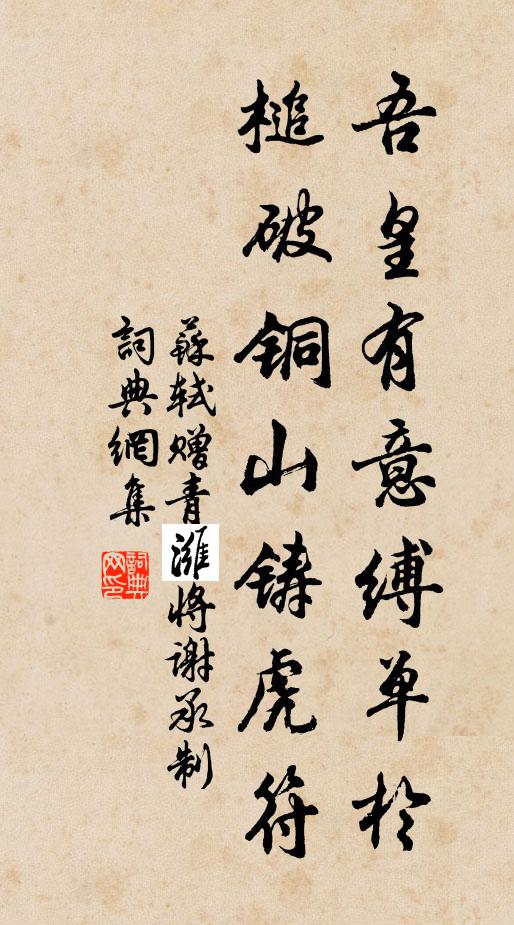 吾皇有意缚单於
槌破铜山铸虎符
蘇轼赠青濰将谢承制
詞典網集
詞典网印